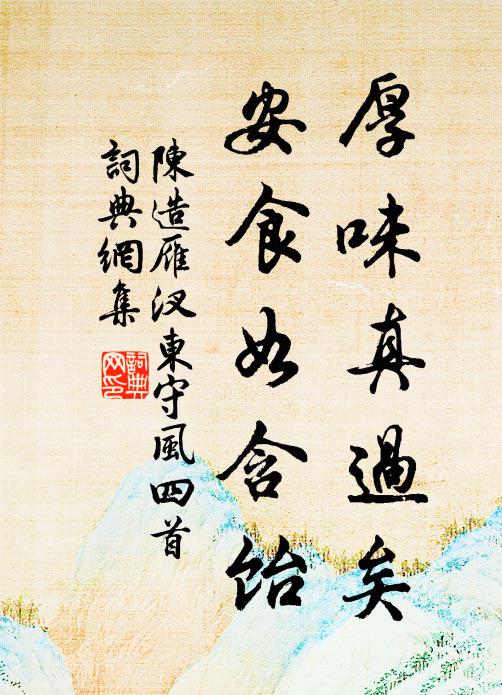 厚味真過矣
安食如含饴
陳造雁汊東守風四首
詞典網集
詞典
网印